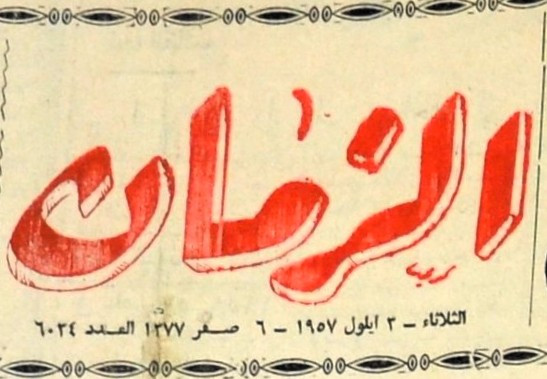 الزمان
الثلاثاء - ٣ ايلول ١٩٥٧ - ٦ صفر ١٣٧٧ العدد ٦٠٣٤